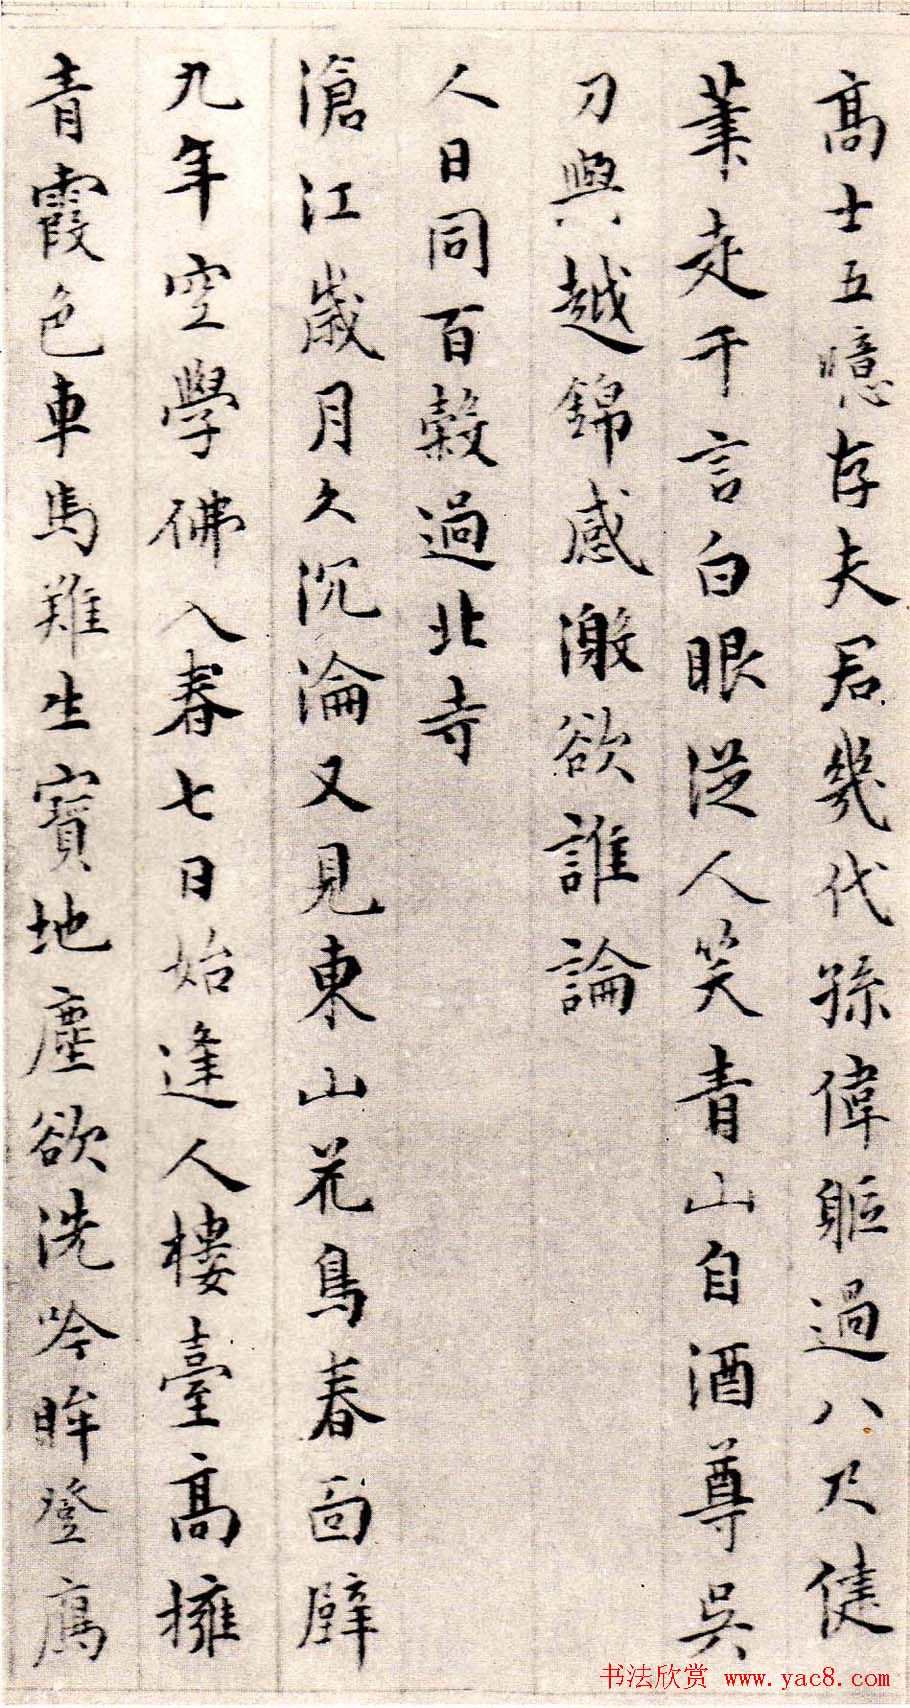 高士五噫存夫君幾代孫偉軀過八尺健
筆走千言白眼從人笑青山自酒尊吳
刀與越錦感激欲誰論
人日同百穀過北寺
滄江歲月久沉淪又見東山花鳥春面壁
九年空學佛入春七日始逢人樓臺高擁
青霞色車馬難生寶地塵欲洗吟眸登
书法欣赏 www.yac8.com